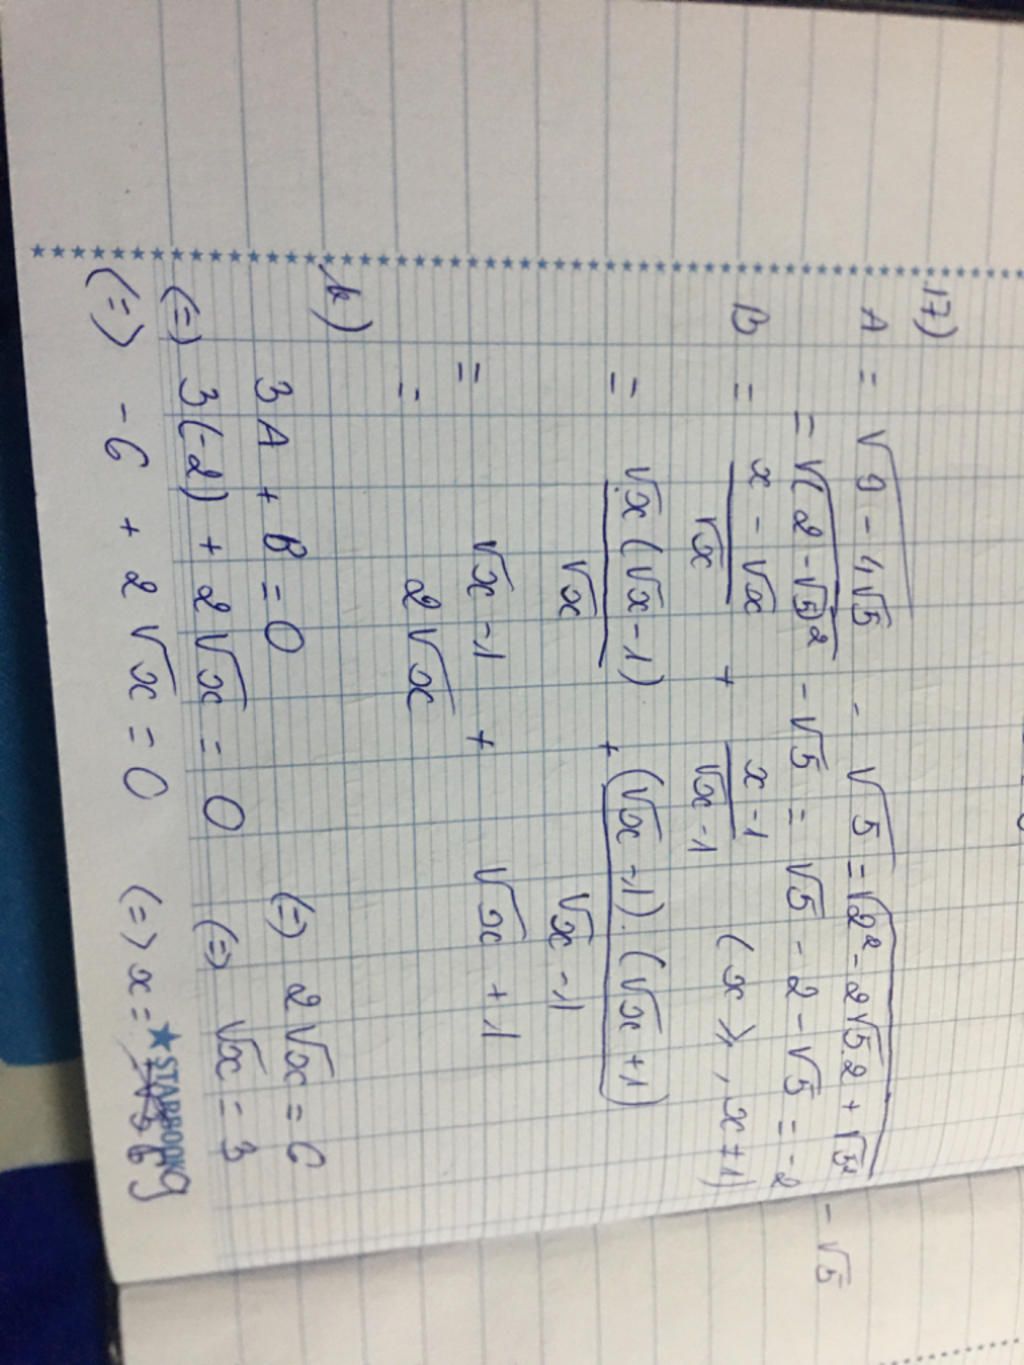 17)
A = √9 - 4√5 - √5 = √2² - 2√5.2 + √5² - √5
= √(2 - √5)² - √5 = √5 - 2 - √5 = -2
B = x - √x / √x + x - 1 / √x - 1 (x ≥, x ≠ 1)
= √x (√x - 1) / √x + (√x - 1).(√x + 1) / √x - 1
= √x - 1 + √x + 1
= 2√x
b)
3A + B = 0 (=) 2√x = 6
(=) 3(-2) + 2√x = 0 (=) √x = 3
(=) -6 + 2√x = 0 (=) x = 9
★STARBOOK